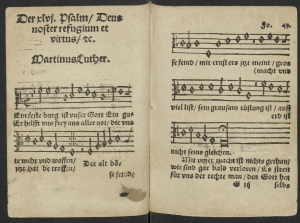 Der xlvj. Psalm/ Deus
noster refugium et
virtus/ ꝛc.
Martinus Luther.
Ein feste burg ist vnser Gott Ein gu-
Er hilfft vns frey aus aller not/ die vns
te wehr vnd waffen/
itzt hat be troffen/
Der alt bö-
se feinde/
30. 43.
se feind/ mit ernst ers jtzt meint/ gros
macht vnd
viel list/ sein grausam rüstung ist/ auff
erd ist
nicht seins gleichen.
Mit vnser macht ist nichts gethan/
wir sind gar bald verloren/ Es streit
für vns der rechte man/ den Gott hat
G iij
selbs